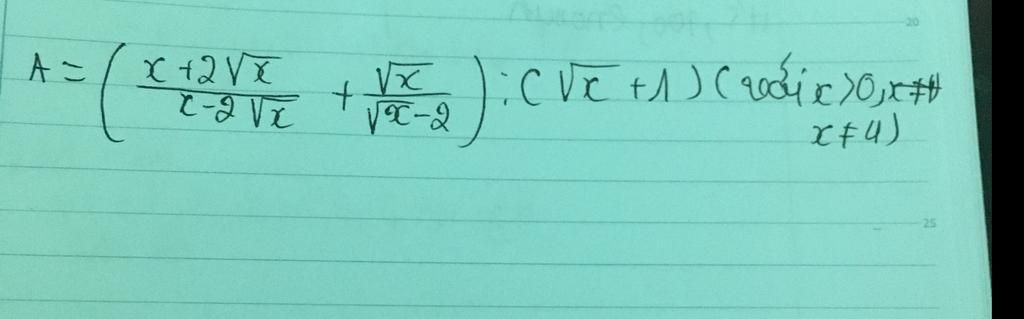 A = ( (x + 2√x)/(x - 2√x) + √x/(√x - 2) ) : (√x + 1) (với x > 0, x ≠
x ≠ 4)
20
25